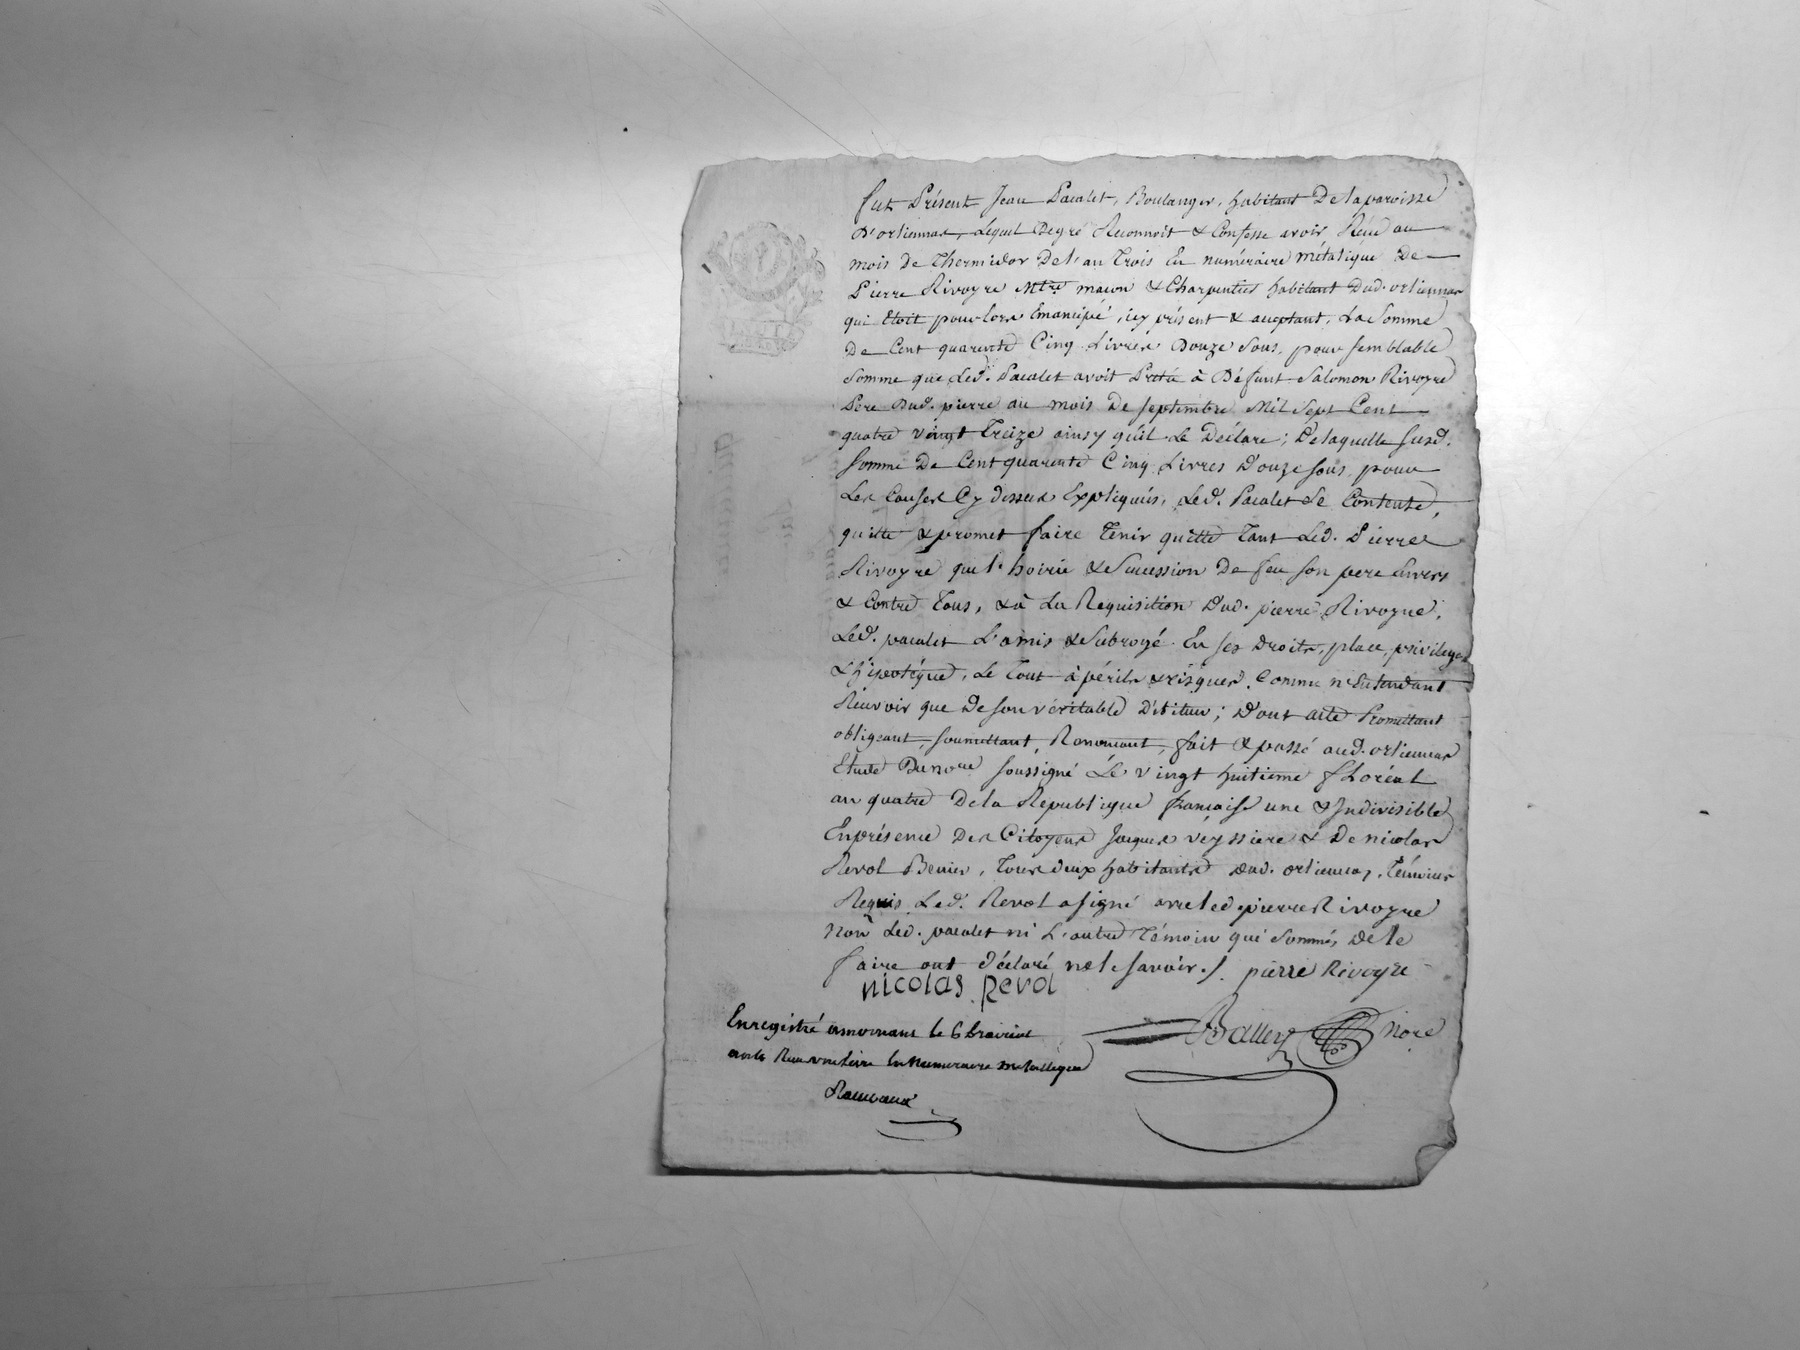 fut Présent Jean Pacalet, Boulanger, habitant De la paroisse
D'orliennas, Lequel De gré Reconnoit & Confesse avoir Réçu au
mois De Thermidor De l'an Trois En numéraire métalique De
Pierre Rivoyre Mtre macon & Charpentier habitant Dud. orliennas
qui Etoit pour lors Emancipé, icy présent & acceptant, La Somme
De Cent quarente Cinq Livres Douze Sous, pour semblable
Somme que Led. Pacalet avoit Preté à Défunt Salomon Rivoyre
Pere Dud. pierre au mois De septembre Mil Sept Cent
quatre vingt Treize ainsy qu'il Le Déclare; De laquelle susd.
somme De Cent quarente Cinq Livres D'ouze sous, pour
Les Causes Cy dessus Expliqueés, Led. Pacalet Se Contente,
quitte & promet faire Tenir quitte Tant Led. Pierre
Rivoyre que l'hoirie & Sucession De feu son pere Envers
& Contre Tous, & à La Requisition Dud. pierre Rivoyre,
Led. pacalet L'a mis & Subrogé En ses Droits, place, privileges
& hipotéque, Le Tout à périls & risques, Comme n'Entendant
Réçevoir que De son véritable Débiteur; D'ont acte Promettant
obligeant, soumettant, Renoncant, fait & passé aud. orliennas
Etude Du nore soussigné Le vingt huitieme floréal
an quatre De la Republique francaise une & Indivisible
En présence Des Citoyens Jacques veyssiere & De nicolas
Revol, Tous deux habitants Dud. orliennas, Témoins
Requis, Led. Revol a signé avec led. pierre Rivoyre
Non Led. pacalet ni L'autre Témoin qui Sommés De le
faire ont déclaré ne le savoir ./. pierre Rivoyre
nicolas Revol
Enregistré a mornant le 6 prairial
an 4 Reçu en numeraire metallique
Balley nore